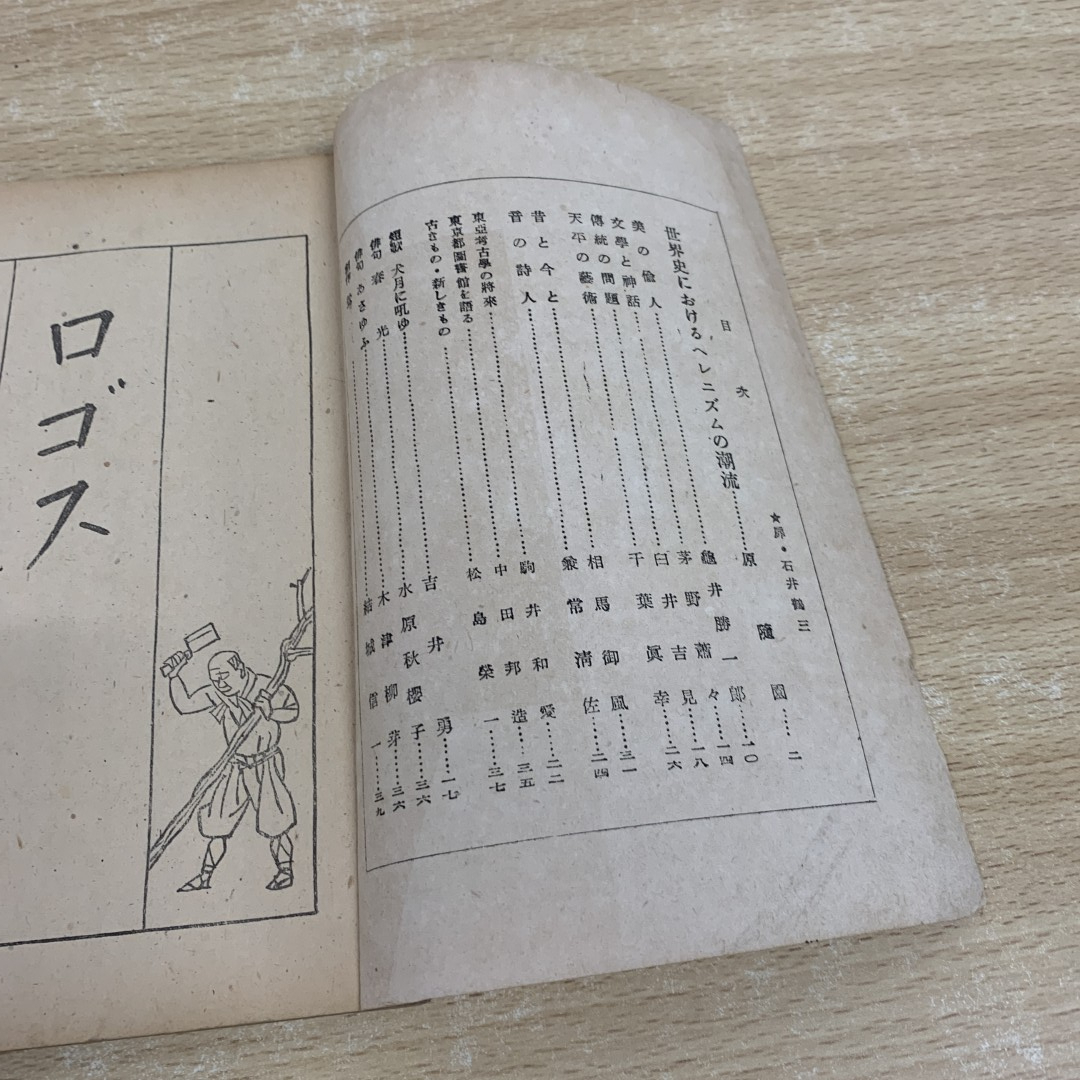 ★扉・石井鶴三
目次
世界史におけるヘレニズムの潮流………原隨園……二
美の倫人………龜井勝一郎……一〇
文學と神話………茅野蕭々……一四
傳統の問題………臼井吉見……一八
天平の藝術………千葉眞幸……二六
昔と今と………相馬御風……三一
昔の詩人………兼常清佐……二四
東亞考古學の將來………駒井和愛……二二
東京都圖書館を語る………中田邦造……三五
古きもの・新しきもの………松島榮一……三七
短歌 犬月に吼ゆ………吉井勇……一七
俳句 春光………水原秋櫻子……三六
俳句 あさゆふ………木津柳芽……三六
結城信一……三九
ロゴス